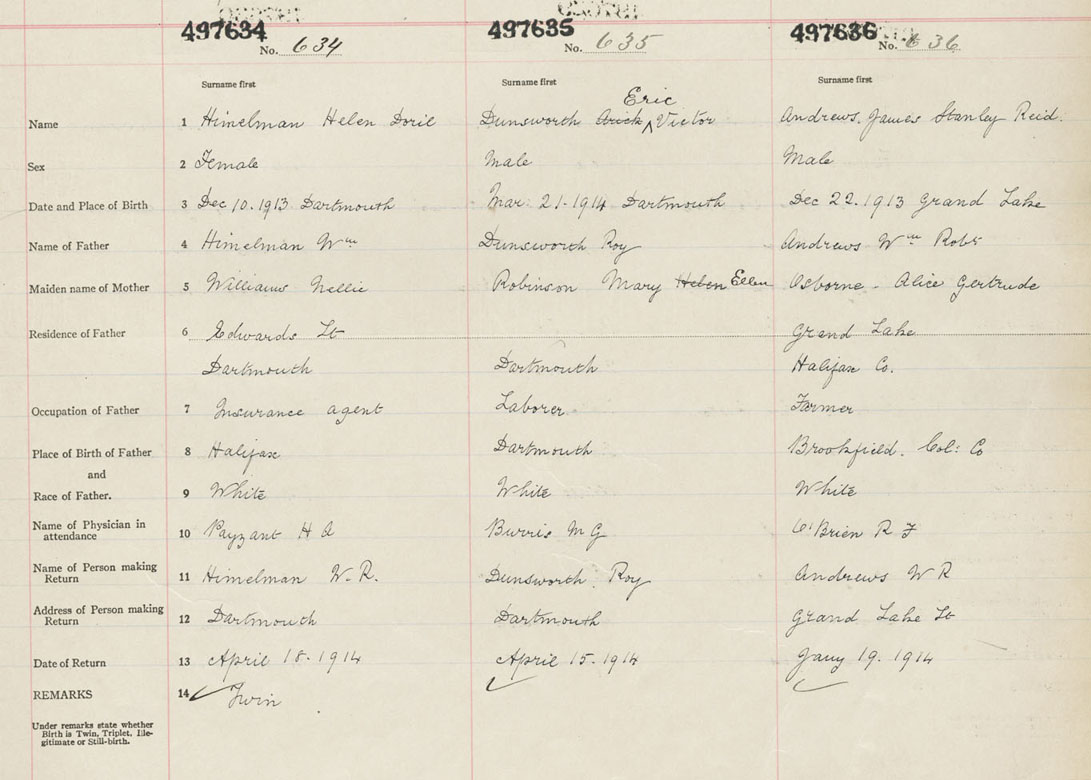 497634 No. 634 497635 No. 635 497636 No. 636
Surname first Surname first Surname first
Eric
Name 1 Himelman Helen Doric Dunsworth Victor Andrews. James Stanley Reid.
Sex 2 Female Male Male
Date and Place of Birth 3 Dec 10. 1913 Dartmouth Mar 21. 1914 Dartmouth Dec 22. 1913 Grand Lake
Name of Father 4 Himelman Wm Dunsworth Roy Andrews Wm Robt
Maiden name of Mother 5 Williams Nellie Robinson Mary Helen Ellen Osborne - Alice Gertrude
Residence of Father 6 Edwards St Grand Lake
Dartmouth Dartmouth Halifax Co.
Occupation of Father 7 Insurance agent Laborer Farmer
Place of Birth of Father 8 Halifax Dartmouth Brookfield. Col: Co
and
Race of Father. 9 White White White
Name of Physician in
attendance 10 Payzant H A Burris M G O'Brien R F
Name of Person making
Return 11 Himelman W. R. Dunsworth Roy Andrews W R
Address of Person making
Return 12 Dartmouth Dartmouth Grand Lake St
Date of Return 13 April 18. 1914 April 15. 1914 Jany 19. 1914
REMARKS 14 Twin
Under remarks state whether
Birth is Twin, Triplet, Ille-
gitimate or Still-birth.